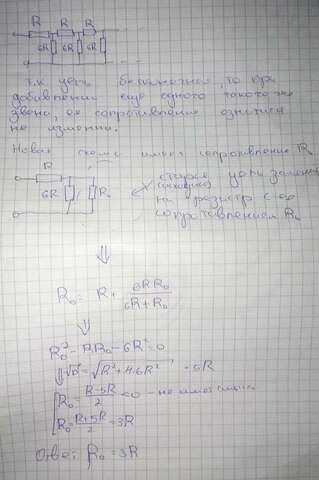 R R R
6R 6R 6R
Т.к цепь бесконечная, то при
добавлении ещё одного такого же
звена, её сопротивление
не изменим.
Новая схема имеет сопротивление R₀
R
6R R₀
старую цепь
на резистр с
сопротивлением R₀
⇓
R₀ = R + 6RR₀/(6R+R₀)
⇓
R₀² - RR₀ - 6R² = 0
⇓ √D = √(R²+4·6R²) = 5R
[ R₀ = (R-5R)/2 < 0 - не имеет смысла
R₀ = (R+5R)/2 = 3R
Ответ: R₀ = 3R